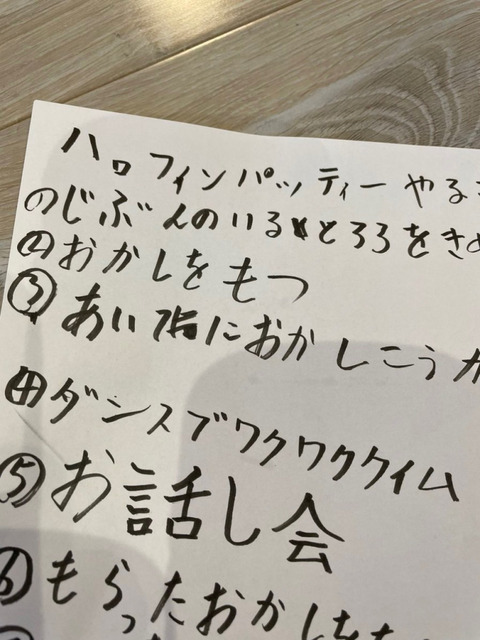 ハロフィンパッティーやる
①じぶんのいるところをき
②おかしをもつ
③あいてにおかしこうか
④ダンスブワクワククイム
⑤お話し会
⑥もらったおかしをも